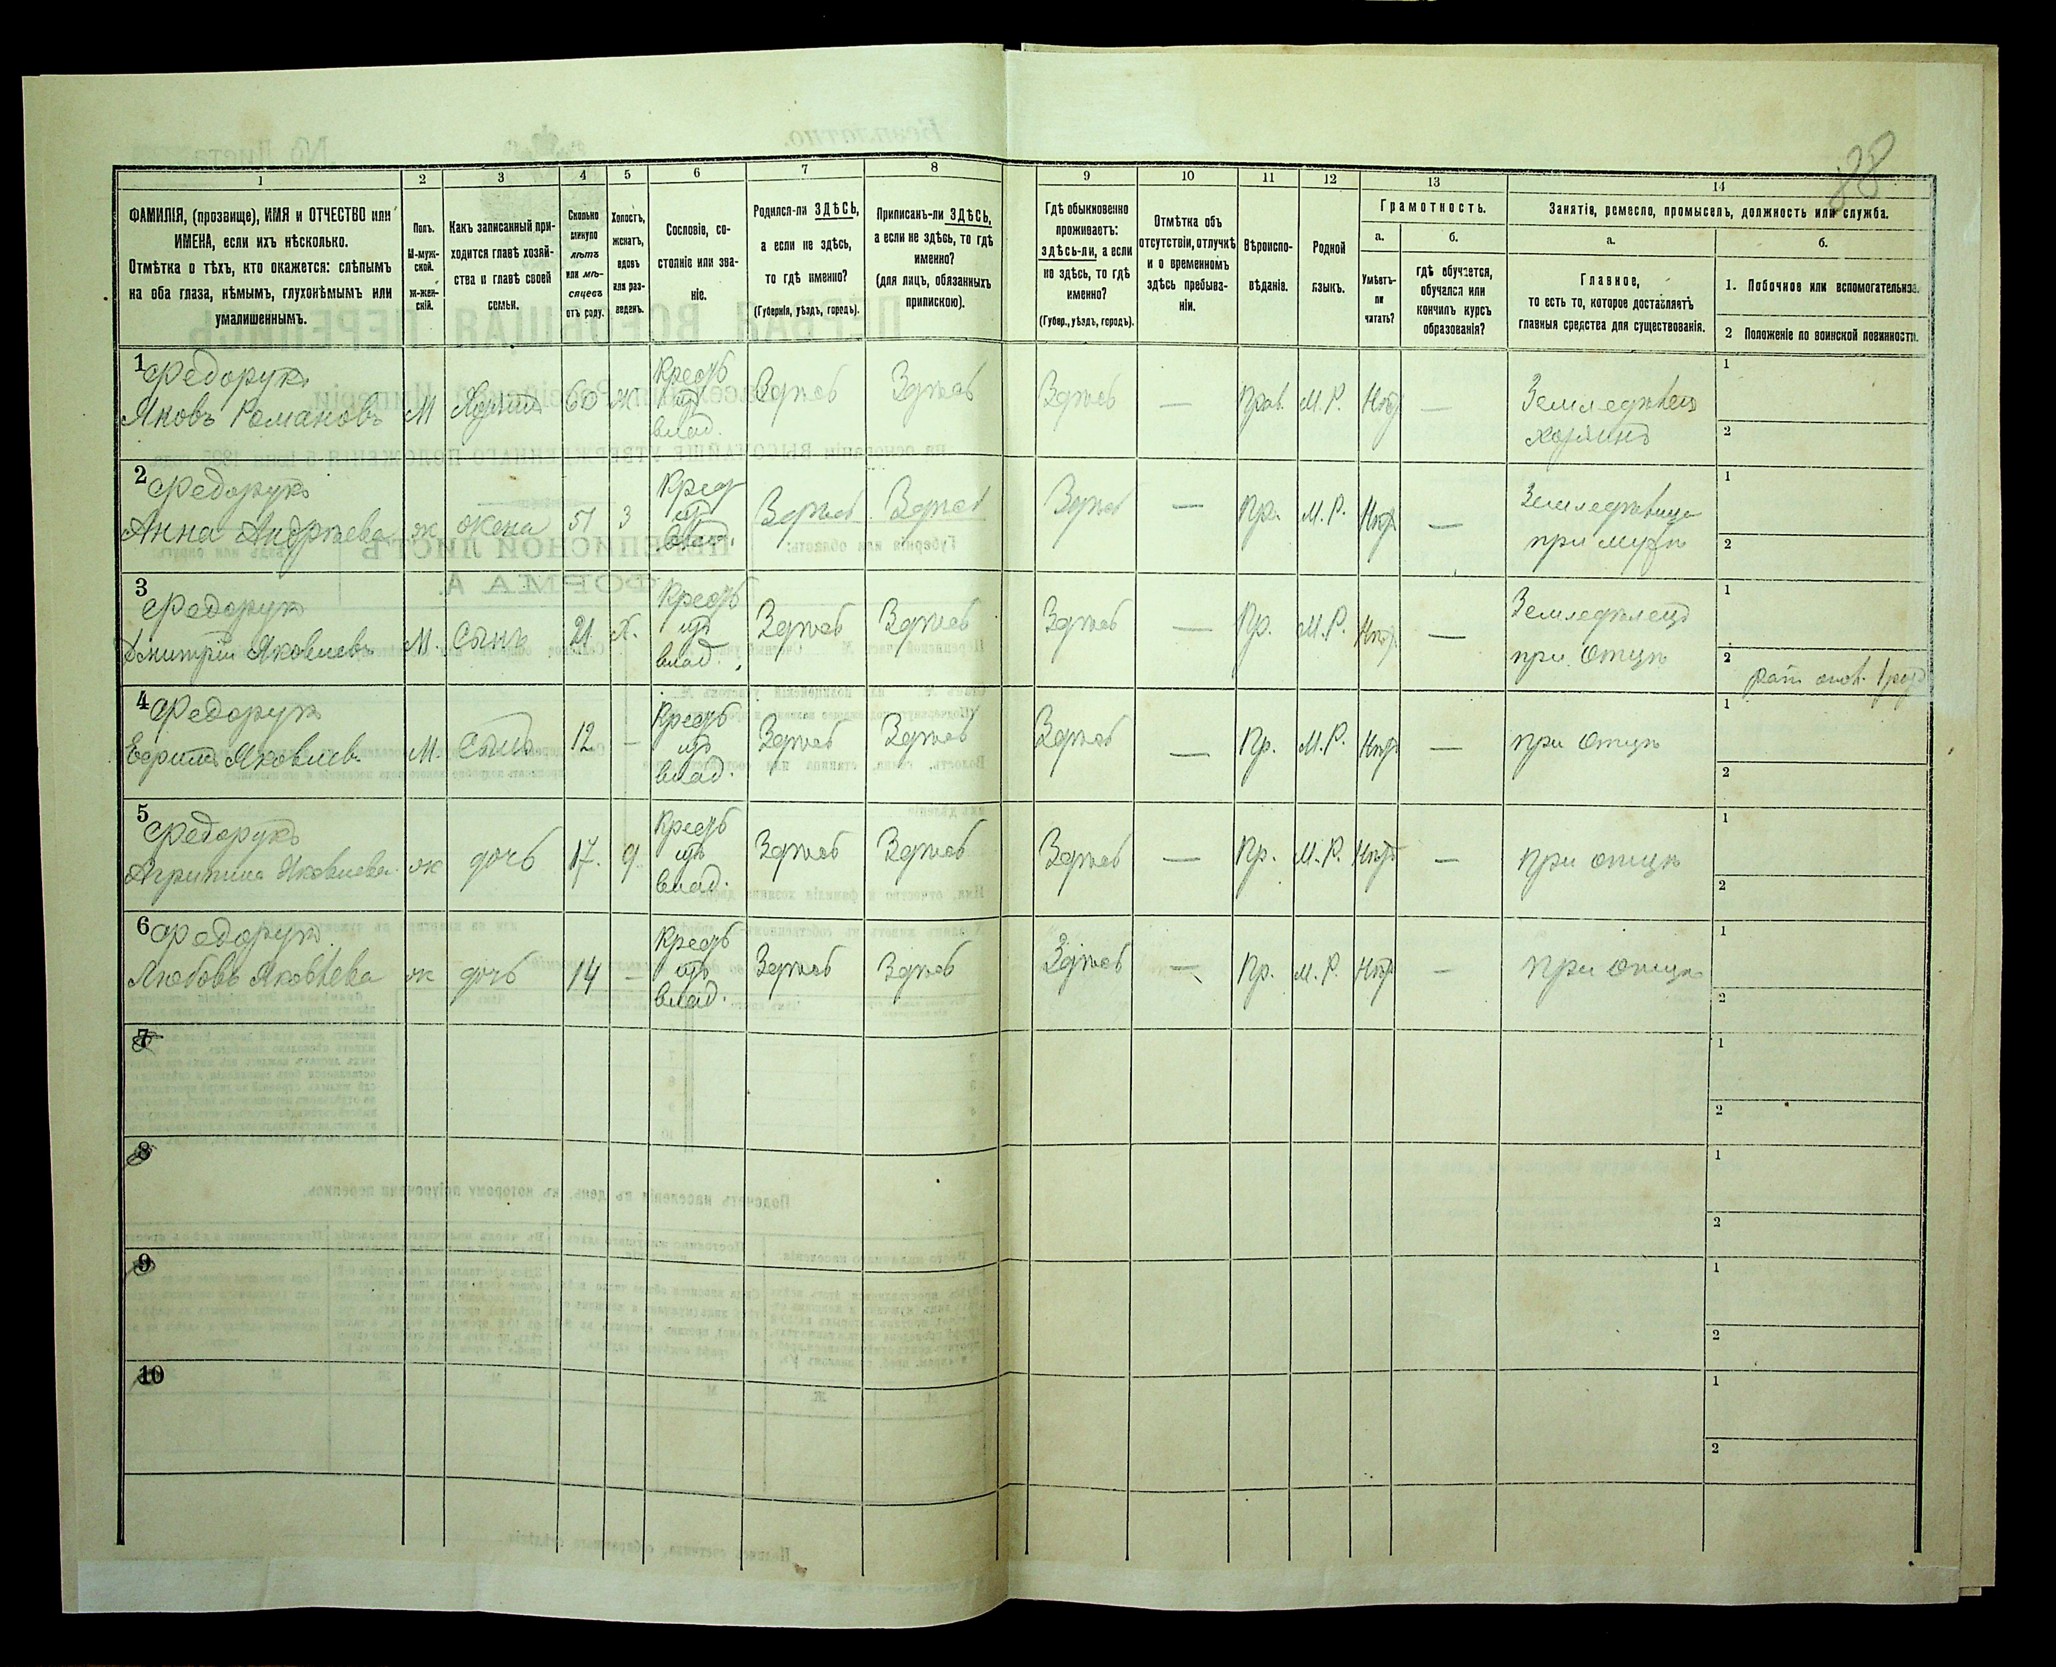 88
1 2 3 4 5 6 7 8 9 10 11 12 13 14
ФАМИЛІЯ, (прозвище), ИМЯ и ОТЧЕСТВО или
ИМЕНА, если ихъ нѣсколько.
Отмѣтка о тѣхъ, кто окажется: слѣпымъ
на оба глаза, нѣмымъ, глухонѣмымъ или
умалишеннымъ.
Полъ.
М-муж-
ской.
Ж-жен-
скій.
Какъ записанный при-
ходится главѣ хозяй-
ства и главѣ своей
семьи.
Сколько
минуло
лѣтъ
или мѣ-
сяцевъ
отъ роду.
Холостъ,
женатъ,
вдовъ
или раз-
веденъ.
Сословіе, со-
стояніе или зва-
ніе.
Родился-ли ЗДѢСЬ,
а если не здѣсь,
то гдѣ именно?
(Губернія, уѣздъ, городъ).
Приписанъ-ли ЗДѢСЬ,
а если не здѣсь, то гдѣ
именно?
(для лицъ, обязанныхъ
припискою).
Гдѣ обыкновенно
проживаетъ:
здѣсь-ли, а если
не здѣсь, то гдѣ
именно?
(Губер., уѣздъ, городъ).
Отмѣтка объ
отсутствіи, отлучкѣ
и о временномъ
здѣсь пребыва-
ніи.
Вѣроиспо-
вѣданіе.
Родной
языкъ.
Грамотность.
а.
Умѣетъ-
ли
читать?
б.
гдѣ обучается,
обучался или
кончилъ курсъ
образованія?
Занятіе, ремесло, промыселъ, должность или служба.
а.
Главное,
то есть то, которое доставляетъ
главныя средства для существованія.
б.
1. Побочное или вспомогательное.
2 Положеніе по воинской повинности.
1 Федорукъ
Яковъ Романовъ М Хозяинъ 60 Ж Крест. изъ влад. Здѣсь Здѣсь Здѣсь — Прав. М. Р. Нѣтъ — Земледѣлецъ хозяинъ 1 2
2 Федорукъ
Анна Андреева ж жена 51 З Крест изъ влад. Здѣсь Здѣсь Здѣсь — Пр. М. Р. Нѣтъ — при мужѣ 1 2
3 Федорук
Дмитрій Яковлевъ М. Сынъ 21 Х. Крест изъ влад. Здѣсь Здѣсь Здѣсь — Пр. М. Р. Нѣтъ — Земледѣлецъ при отцѣ 1 2
4 Федорук
Яковлев. М. Сынъ 12 — Крест изъ влад. Здѣсь Здѣсь Здѣсь — Пр. М. Р. Нѣтъ — при отцѣ 1 2
5 Федорукъ
Яковлева ж дочь 17. д Крест изъ влад. Здѣсь Здѣсь Здѣсь — Пр. М. Р. Нѣтъ — при отцѣ 1 2
6 Федорук
Любовь Яковлева ж дочь 14 — Крест изъ влад. Здѣсь Здѣсь Здѣсь — Пр. М. Р. Нѣтъ — при отцѣ 1 2
7 1 2
8 1 2
9 1 2
10 1 2